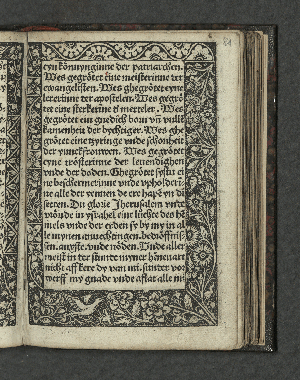 eyn könnynginne der patriarchen.
Wes gegrötet eine meisterinne der
ewangelisten. Wes ghegrötet eyne
lererinne der apostelen. Wes gegrö
tet eine sterkerinne der merteler. Wes
gegrötet ein
kamenheit der bychtiger. Wes ghe
grötet eine tzyringe vnde schonheit
der yunckfrouwen. Wes gegrötet
eyne trösterinne der leuendighen
vnde der doden. Ghegrötet systu ei
ne beschermerinne vnde vpholderin
ne alle der yennen de ere hapen dy
setten. Du glorie Jherusalem vnde
vröude in ysrahel eine lüchte des he
mels vnde der erden sy by my in al
le mynen anuechtingen. bedröffnis
sen. angste. vnde nöden. Vnde aller
meist in der stunde myner hennenart
nicht affkere dy van mi. sunder vor
werff my gnade vnde aflat alle mi